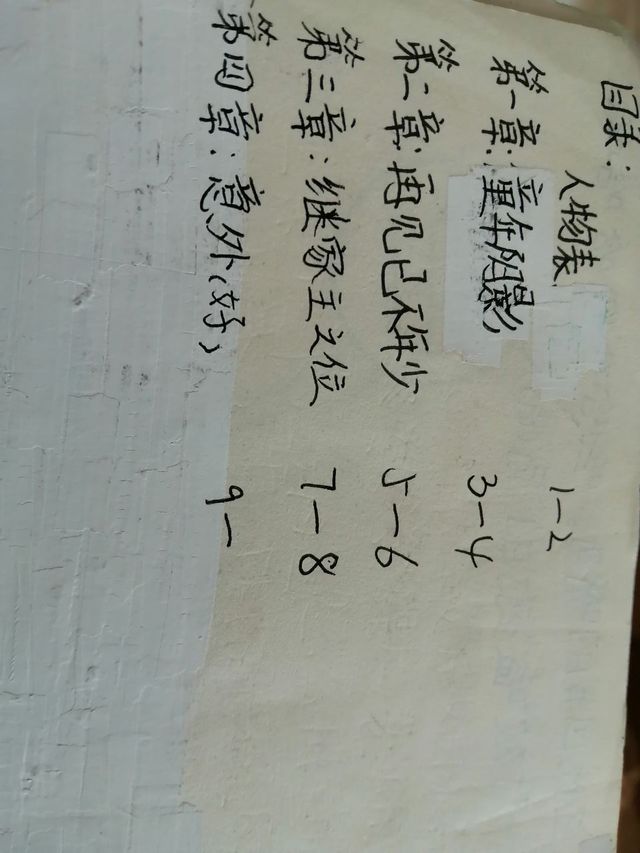 目录:
人物表 1-2
第一章:童年阴影 3-4
第二章:再见已不年少 5-6
第三章:继家主之位 7-8
第四章:意外(好) 9-